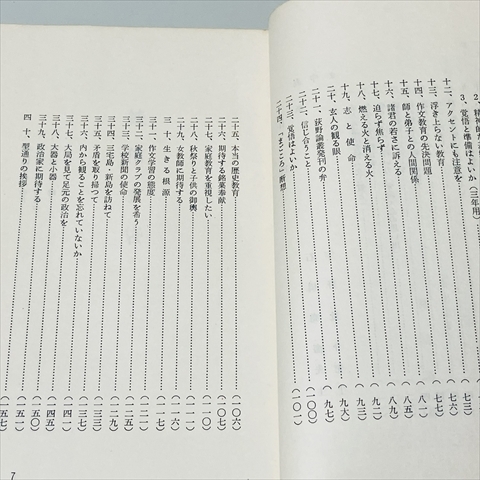 2、精神的な
3、覚悟と準備はよいか(三年用)
十二、アクセントにも注意を……(七三)
十三、浮き上らない教育……(七六)
十四、作文教育の先決問題
十五、師と弟子との人間関係
十六、諸君の若さに訴える……(八九)
十七、迫らず焦らず……(九一)
十八、燃える火と消える火……(九二)
十九、志と使命……(九六)
二十、玄人の観る眼……(九七)
二十一、荻野論叢発刊の弁……(一〇〇)
二十二、信じ合うこと
二十三、覚悟はよいか
二十四、『まごころ』断想……(一〇二)
二十五、本当の歴史教育……(一〇六)
二十六、期待する銘菓奉献……(一〇七)
二十七、家庭教育を重視したい……(一一〇)
二十八、秋祭りと子供の御輿……(一一四)
二十九、女教師に期待する……(一一六)
三十、生きる根源……(一一七)
三十一、作文学習の態度……(一二一)
三十二、家庭クラブの発展を希う……(一二二)
三十三、学校新聞の使命……(一二五)
三十四、三宅島・新島を訪ねて……(一二九)
三十五、矛盾を取り帰って……(一三三)
三十六、内から観ることを忘れていないか……(一三七)
三十七、大局を見て足元の政治を……(一四一)
三十八、大器と小器……(一四五)
三十九、政治家に期待する……(一五〇)
四十、型通りの挨拶……(一五七)
7